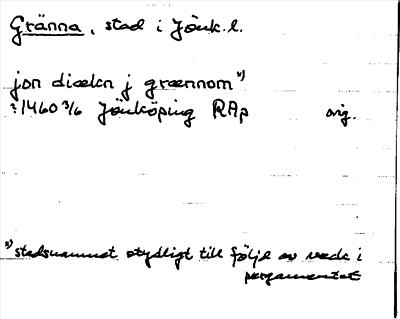 Gränna, stad i Jönk.l.
jon diækn j grænnom x)
?1460 3/6 Jönköping RAp orig.
x) stadsnamnet otydligt till följd av veck i
pergamentet